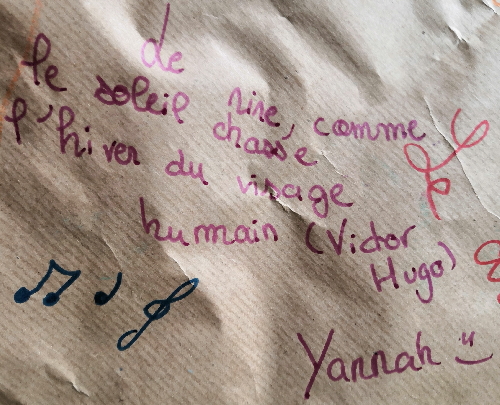 de
le soleil rire, comme
l'hiver chasse
du visage
humain (Victor
Hugo)
Yannah